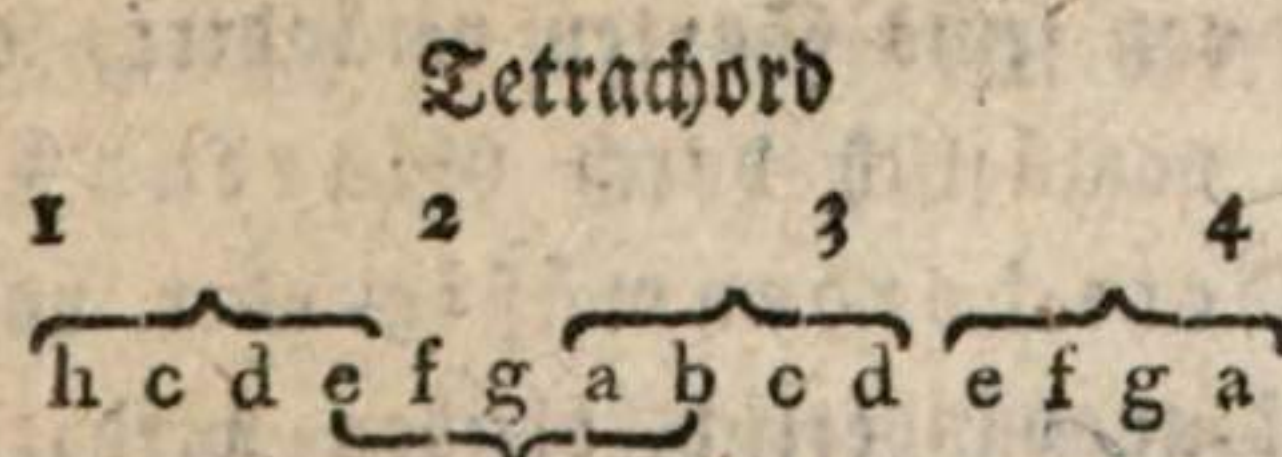 Tetrachord
1 2 3 4
h c d e f g a b c d e f g a